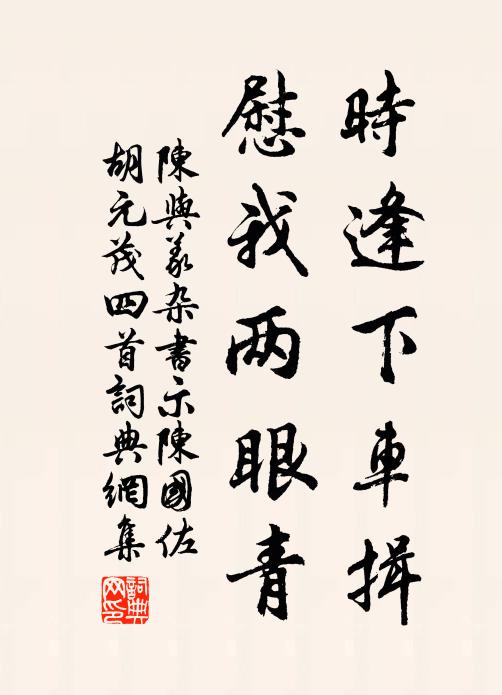 時逢下車揖
慰我两眼青
陳與義杂書示陳國佐
胡元茂四首詞典網集
詞典
网印